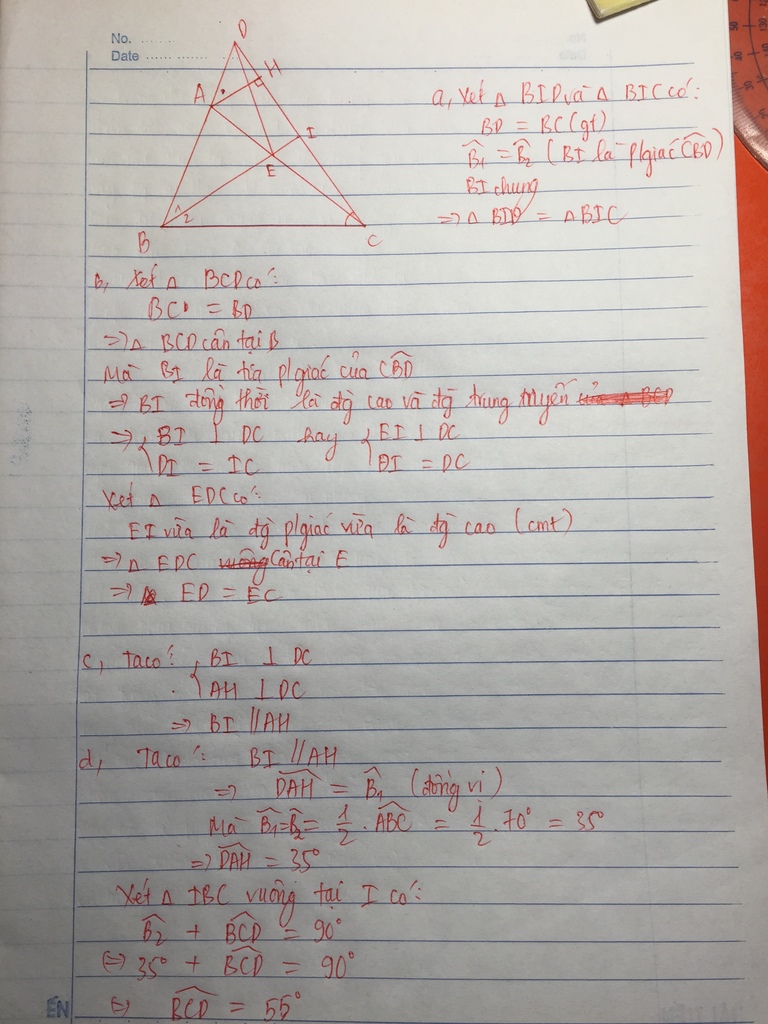 No. ........
Date ..................
D
H
A
I
E
2
B
C
a, Xét △ BID và △ BIC có:
BD = BC (gt)
B̂₁ = B̂₂ (BI là p/giác CB̂D)
BI chung
=> △ BID = △ BIC
b, Xét △ BCD có:
BC = BD
=> △ BCD cân tại B
Mà BI là tia p/giác của CB̂D
=> BI đồng thời là đg cao và đg trung tuyến
=> { BI ⊥ DC hay { EI ⊥ DC
DI = IC ĐI = DC
Xét △ EDC có:
EI vừa là đg p/giác vừa là đg cao (cmt)
=> △ EDC cân tại E
=> ED = EC
c, Ta có: { BI ⊥ DC
AH ⊥ DC
=> BI // AH
d, Ta có: BI // AH
=> DÂH = B̂₁ (đồng vị)
Mà B̂₁ = B̂₂ = 1/2 . AB̂C = 1/2 . 70° = 35°
=> DÂH = 35°
Xét △ IBC vuông tại I có:
B̂₂ + BĈD = 90°
<=> 35° + BĈD = 90°
<=> BĈD = 55°